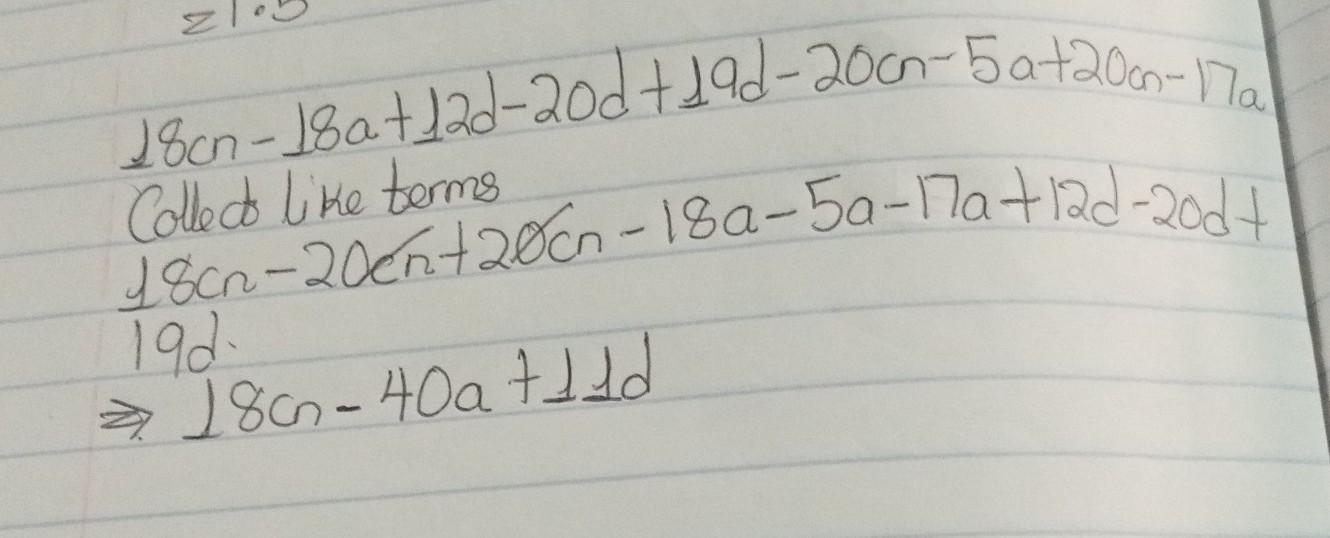 =1.5
18cn-18a+12d-20d+19d-20cn-5a+20cn-17a
Collect like terms
18cn-20cn+20cn-18a-5a-17a+12d-20d+
19d.
⇒ 18cn-40a+11d